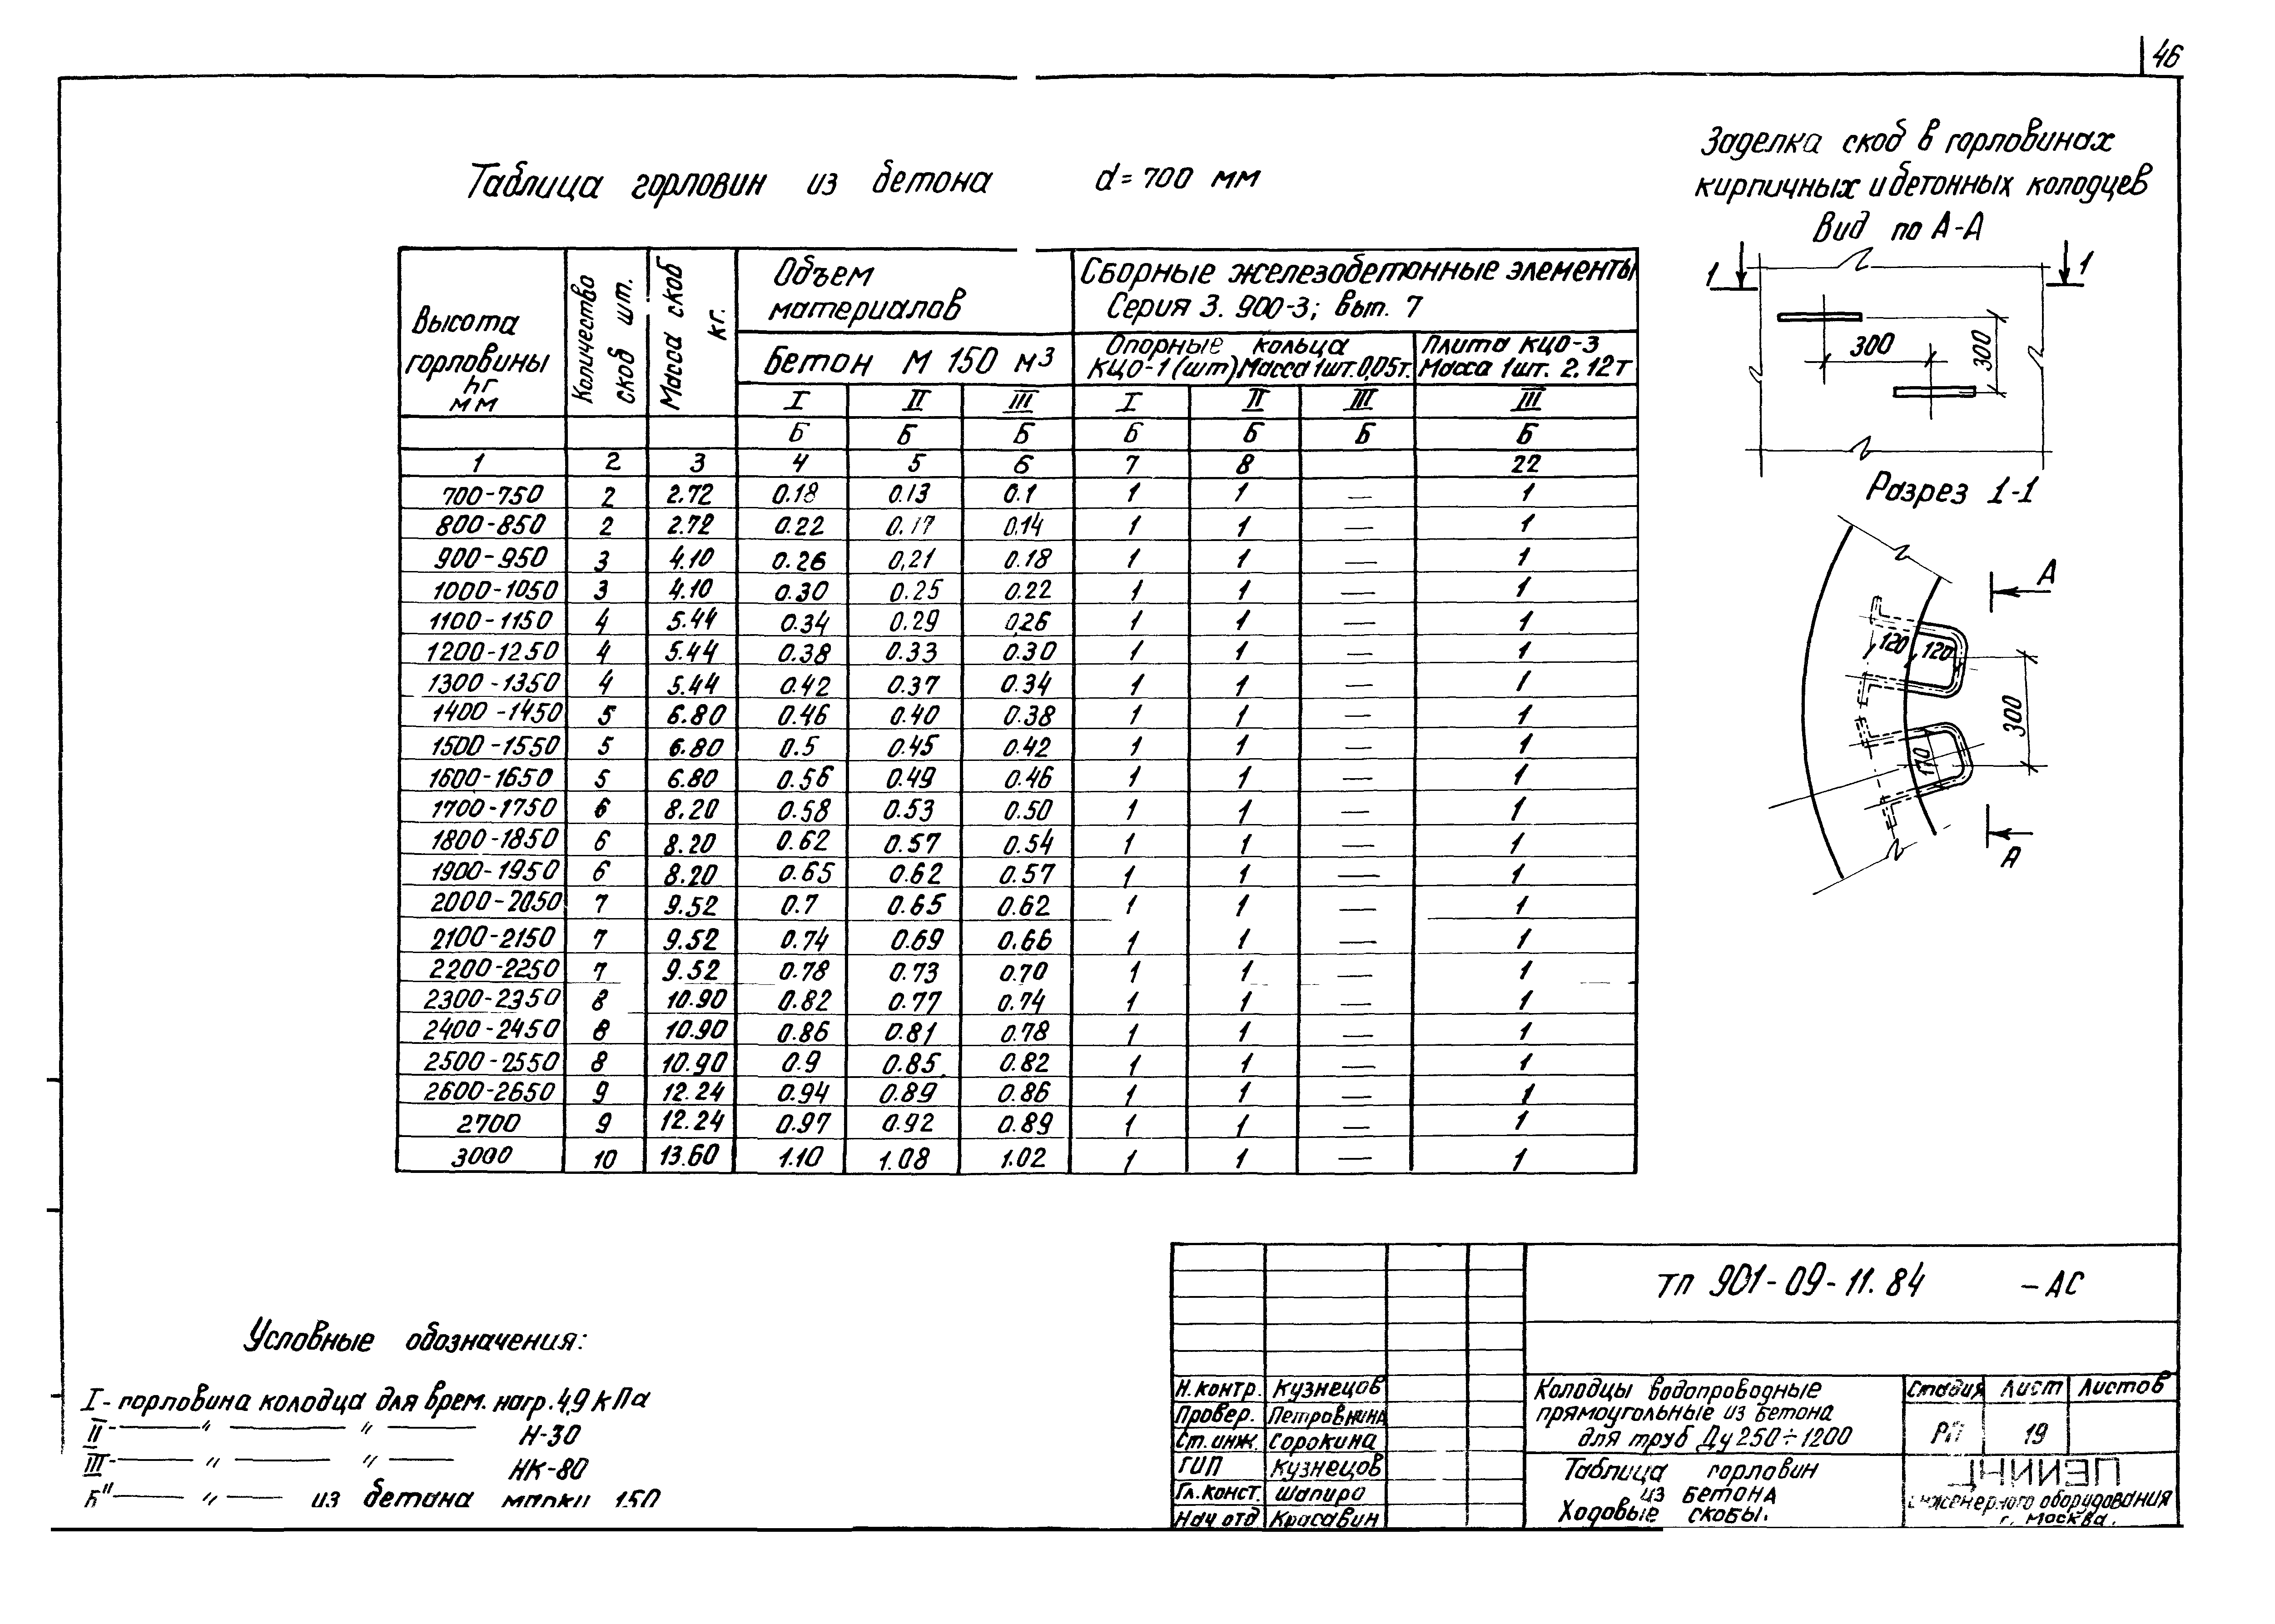 46
Таблица горловин из бетона d=700 мм
Высота горловины hг мм
Количество скоб шт.
Масса скоб кг.
Объем материалов
Сборные железобетонные элементы
Серия 3.900-3; вып. 7
Бетон М 150 м3
Опорные кольца КЦО-1 (шт). Масса 1шт. 0,05т.
Плита КЦО-3 Масса 1шт. 2.12т
I II III I II III III
Б Б Б Б Б Б Б
1 2 3 4 5 6 7 8 22
700-750 2 2.72 0.18 0.13 0.1 1 1 — 1
800-850 2 2.72 0.22 0.17 0.14 1 1 — 1
900-950 3 4.10 0.26 0,21 0.18 1 1 — 1
1000-1050 3 4.10 0.30 0.25 0.22 1 1 — 1
1100-1150 4 5.44 0.34 0.29 0,26 1 1 — 1
1200-1250 4 5.44 0.38 0.33 0.30 1 1 — 1
1300-1350 4 5.44 0.42 0.37 0.34 1 1 — 1
1400-1450 5 6.80 0.46 0.40 0.38 1 1 — 1
1500-1550 5 6.80 0.5 0.45 0.42 1 1 — 1
1600-1650 5 6.80 0.56 0.49 0.46 1 1 — 1
1700-1750 6 8.20 0.58 0.53 0.50 1 1 — 1
1800-1850 6 8.20 0.62 0.57 0.54 1 1 — 1
1900-1950 6 8.20 0.65 0.62 0.57 1 1 — 1
2000-2050 7 9.52 0.7 0.65 0.62 1 1 — 1
2100-2150 7 9.52 0.74 0.69 0.66 1 1 — 1
2200-2250 7 9.52 0.78 0.73 0.70 1 1 — 1
2300-2350 8 10.90 0.82 0.77 0.74 1 1 — 1
2400-2450 8 10.90 0.86 0.81 0.78 1 1 — 1
2500-2550 8 10.90 0.9 0.85 0.82 1 1 — 1
2600-2650 9 12.24 0.94 0.89 0.86 1 1 — 1
2700 9 12.24 0.97 0.92 0.89 1 1 — 1
3000 10 13.60 1.10 1.08 1.02 1 1 — 1
Заделка скоб в горловинах
кирпичных и бетонных колодцев
Вид по А-А
1 1
300
300
Разрез 1-1
А
120 120
300
170
А
Условные обозначения:
I - горловина колодца для врем. нагр. 4,9 кПа
II - — " — " — Н-30
III - — " — " — НК-80
Б" — " — из бетона марки 150
ТП 901-09-11.84 -АС
Н.контр. Кузнецов
Провер. Петровнина
Ст.инж. Сорокина
ГИП Кузнецов
Гл.конст. Шапиро
Нач отд Красавин
Колодцы водопроводные
прямоугольные из бетона
для труб Ду 250÷1200
Стадия Лист Листов
РП 19
Таблица горловин
из бетона
Ходовые скобы.
ЦНИИЭП
инженерного оборудования
г. Москва.